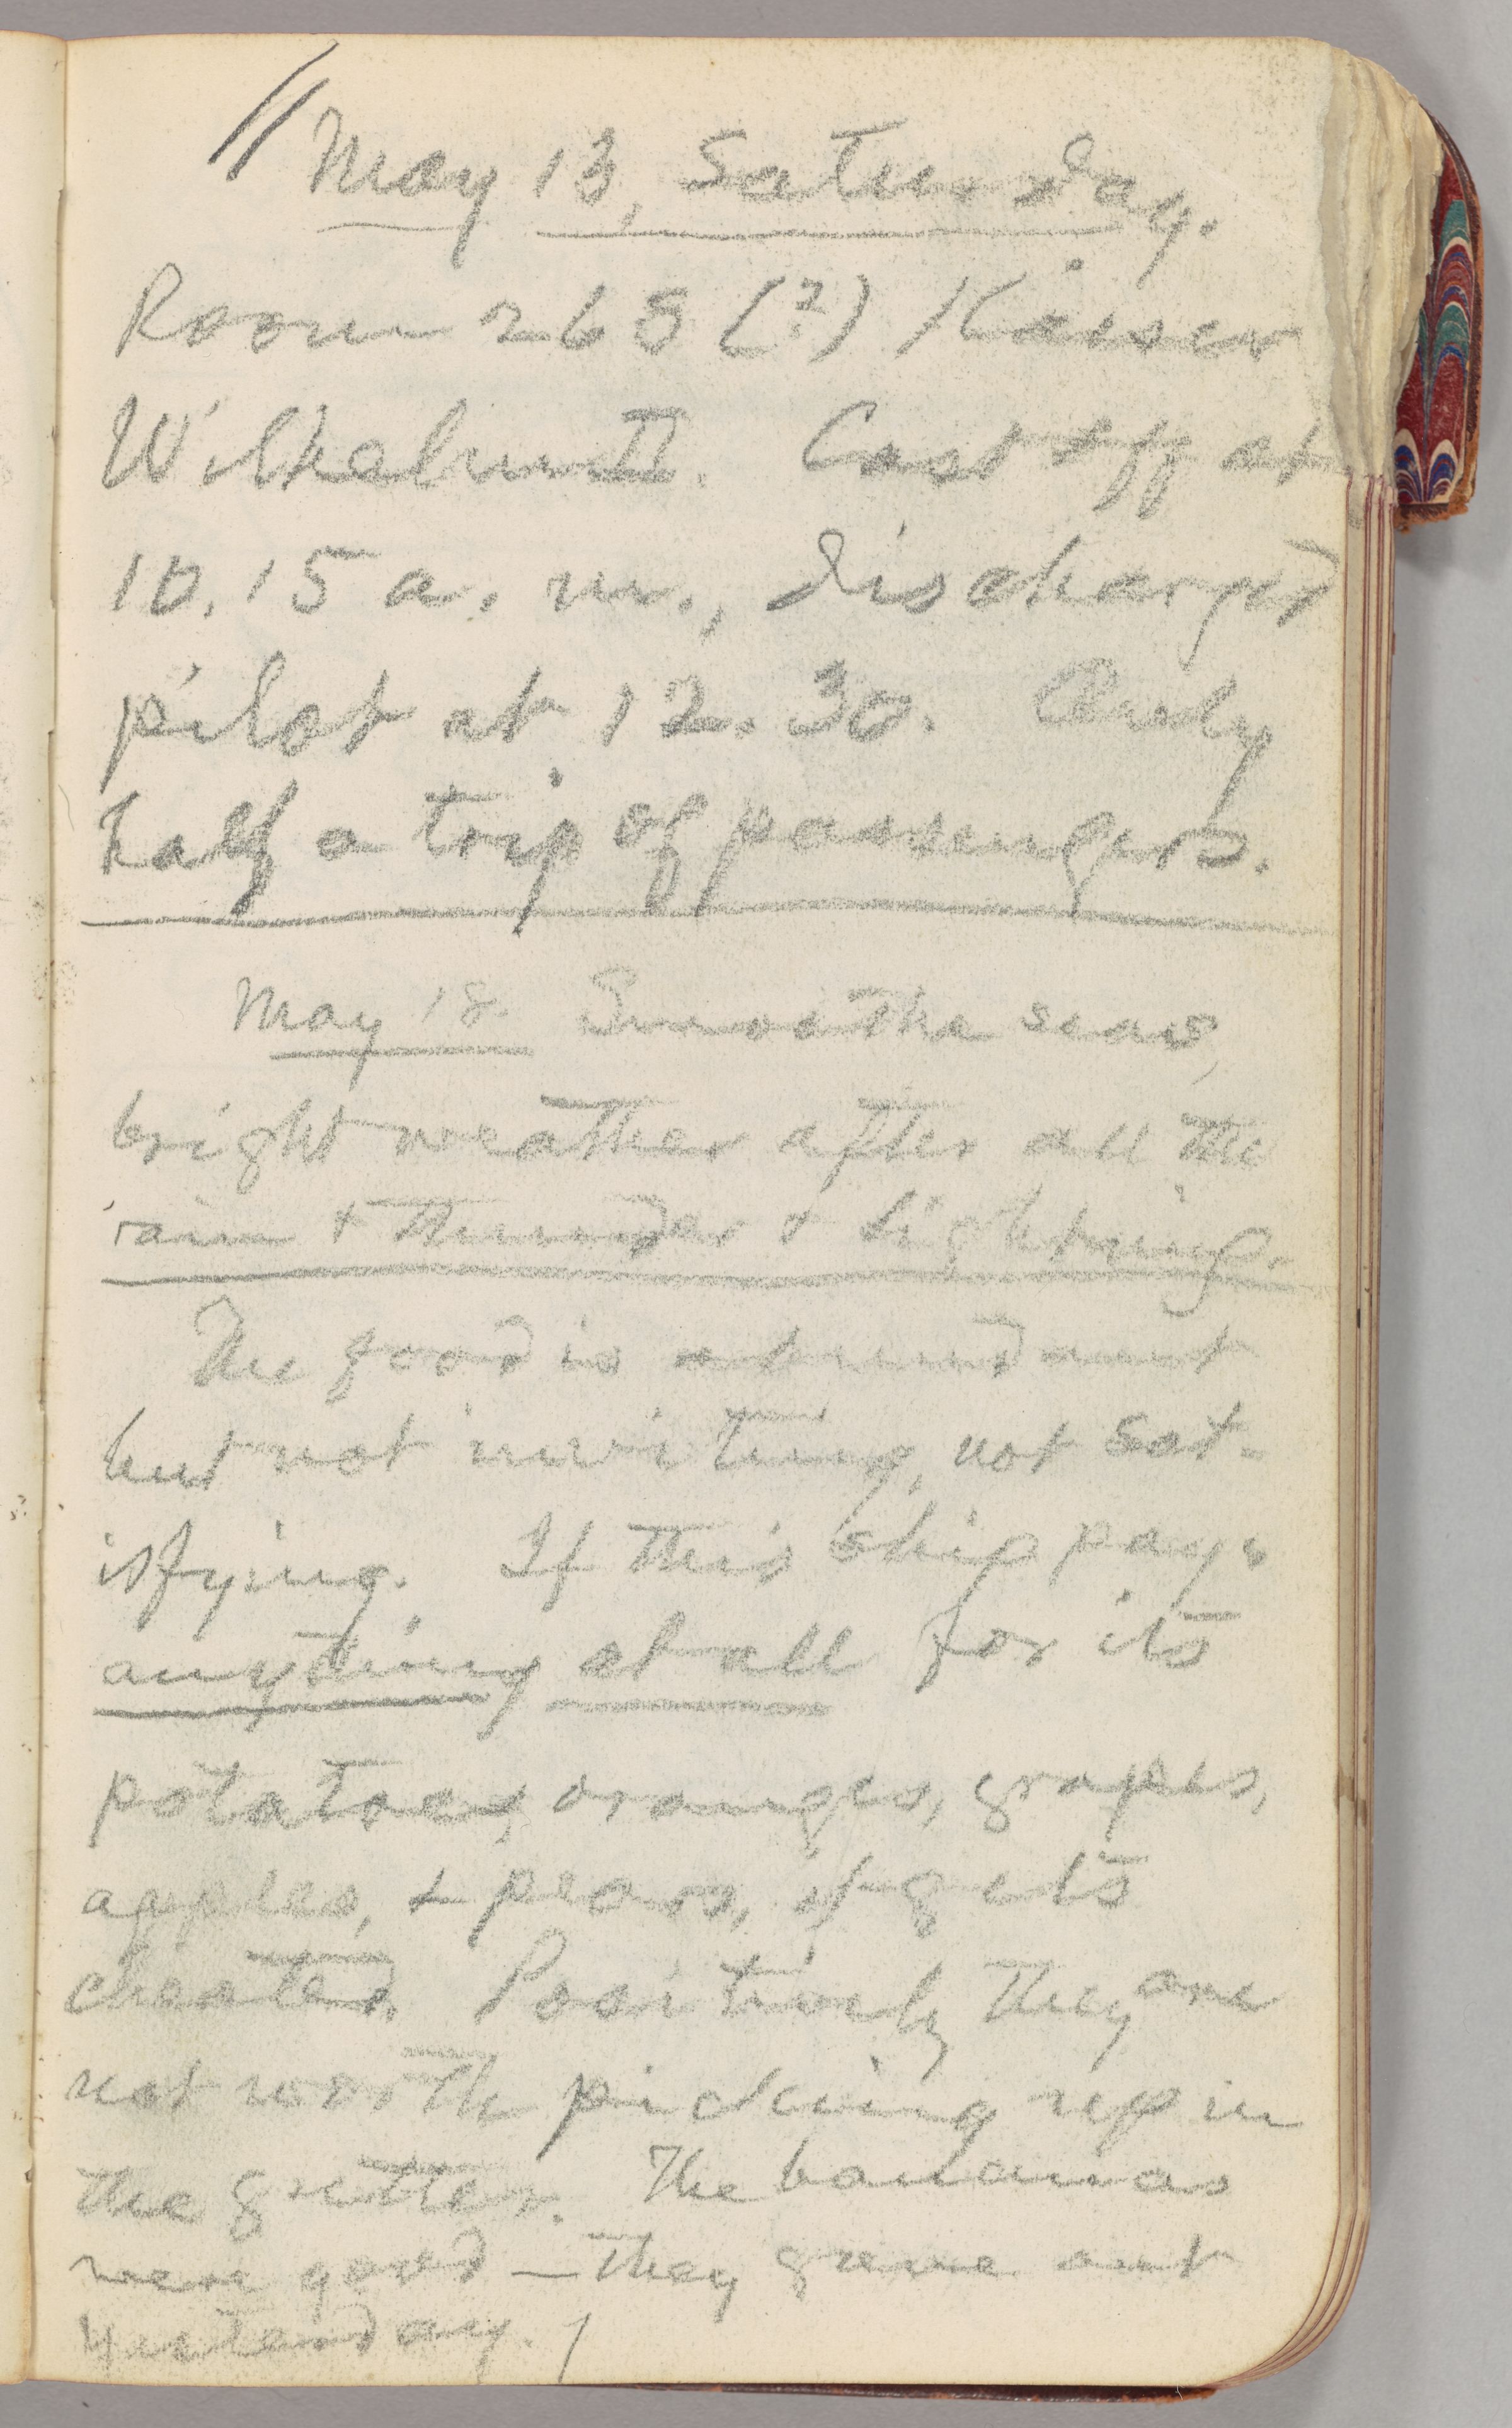 May 13, Saturday.
Room 268 (?) Kaiser
Wilhelm II. Cast off at
10.15 a. m., discharged
pilot at 12.30. Only
half a trip of passengers.
May 18. Smoothe seas,
bright weather after all the
rain & thunder & lightning.
The food is abundant
but not inviting, not sat-
isfying. If this ship pays
anything at all for its
potatoes, oranges, grapes,
apples, & pears, it gets
cheated. Positively they are
not worth picking up in
the gutter. The bananas
were good — they gave out
yesterday.